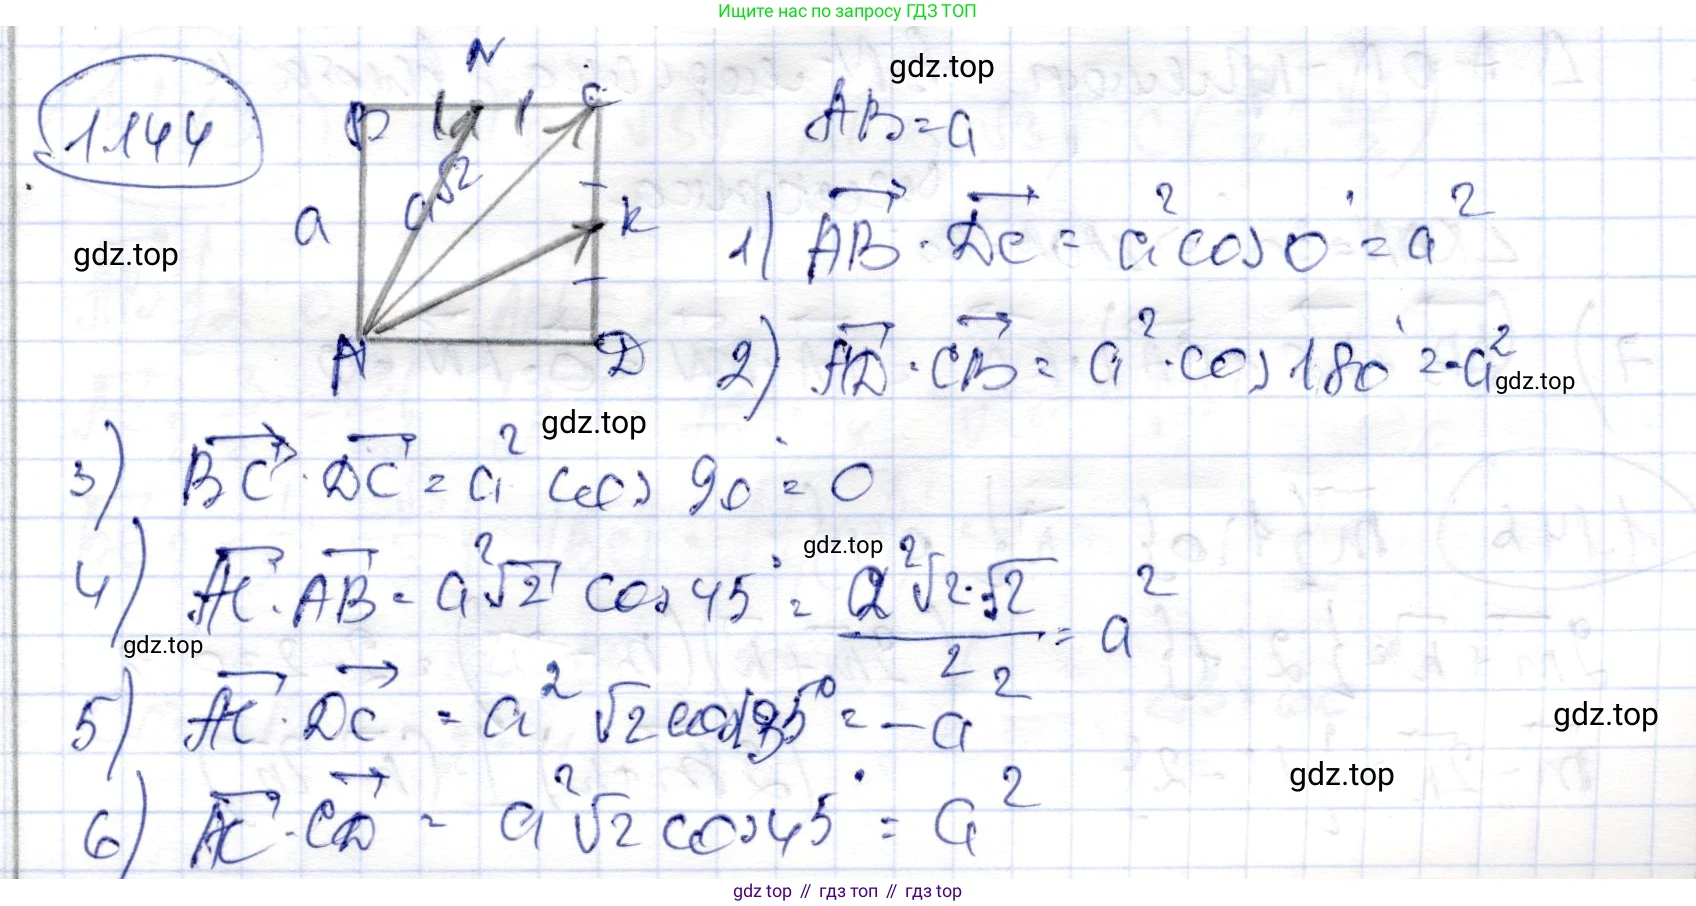 Ищите нас по запросу ГДЗ ТОП
1.144
N
B C
gdz.top
AB = a
a√2
a
K
gdz.top
1) AB · DC = a² cos 0° = a²
A D
2) AD · CB = a² · cos 180° = -a²
gdz.top
gdz.top
3) BC · DC = a² cos 90° = 0
gdz.top
4) AC · AB = a²√2 cos 45° = a²√2·√2 / 2 = a²
gdz.top
5) AC · DC = a²√2 cos 135° = -a²
gdz.top
gdz.top
6) AC · CD = a²√2 cos 45° = a²
gdz.top // гдз топ // gdz.top